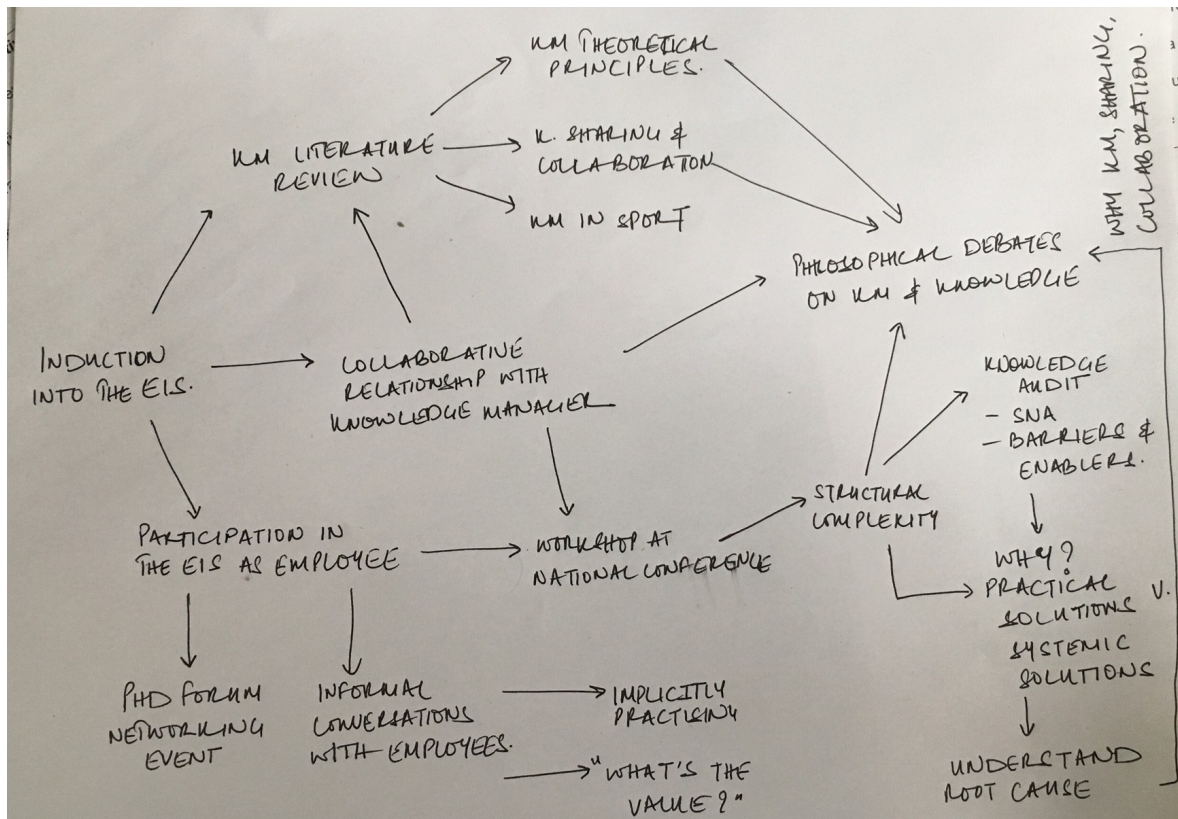 KM THEORETICAL
PRINCIPLES.
KM LITERATURE
REVIEW
K. SHARING &
COLLABORATION
KM IN SPORT
WHY KM, SHARING,
COLLABORATION.
PHILOSOPHICAL DEBATES
ON KM & KNOWLEDGE
INDUCTION
INTO THE EIS.
COLLABORATIVE
RELATIONSHIP WITH
KNOWLEDGE MANAGER
KNOWLEDGE
AUDIT
- SNA
- BARRIERS &
ENABLERS.
STRUCTURAL
COMPLEXITY
PARTICIPATION IN
THE EIS AS EMPLOYEE
WORKSHOP AT
NATIONAL CONFERENCE
WHY?
PRACTICAL
SOLUTIONS V.
SYSTEMIC
SOLUTIONS
PHD FORUM
NETWORKING
EVENT
INFORMAL
CONVERSATIONS
WITH EMPLOYEES.
IMPLICITLY
PRACTISING
"WHAT'S THE
VALUE?"
UNDERSTAND
ROOT CAUSE